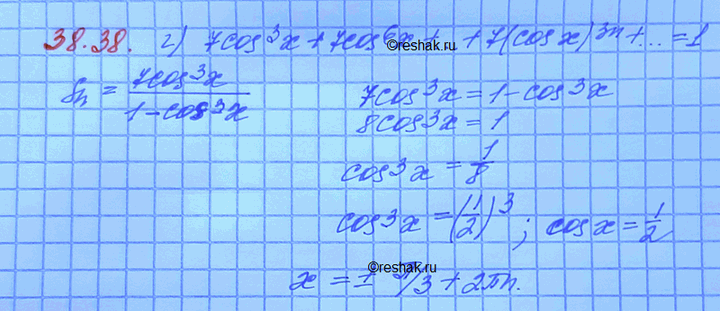 38.38. г) 7cos³x + 7cos⁶x + + 7(cos x)³ⁿ + ... = 1
©reshak.ru
Sn = 7cos³x / 1 - cos³x
7cos³x = 1 - cos³x
8cos³x = 1
cos³x = 1/8
cos³x = (1/2)³; cos x = 1/2
©reshak.ru
x = ± π/3 + 2πn.